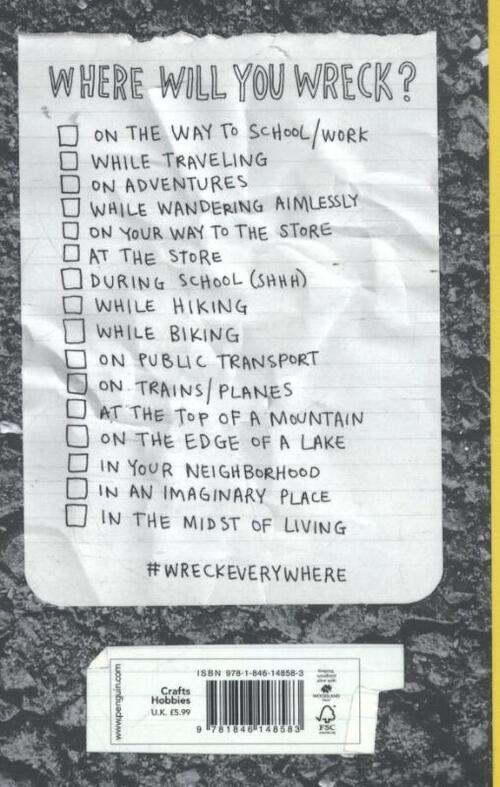 WHERE WILL YOU WRECK?
ON THE WAY TO SCHOOL/WORK
WHILE TRAVELING
ON ADVENTURES
WHILE WANDERING AIMLESSLY
ON YOUR WAY TO THE STORE
AT THE STORE
DURING SCHOOL (SHHH)
WHILE HIKING
WHILE BIKING
ON PUBLIC TRANSPORT
ON TRAINS/PLANES
AT THE TOP OF A MOUNTAIN
ON THE EDGE OF A LAKE
IN YOUR NEIGHBORHOOD
IN AN IMAGINARY PLACE
IN THE MIDST OF LIVING
#WRECKEVERYWHERE
www.penguin.com
Crafts
Hobbies
U.K. £5.99
ISBN 978-1-846-14858-3
9 781846 148583
WOODLAND
FSC